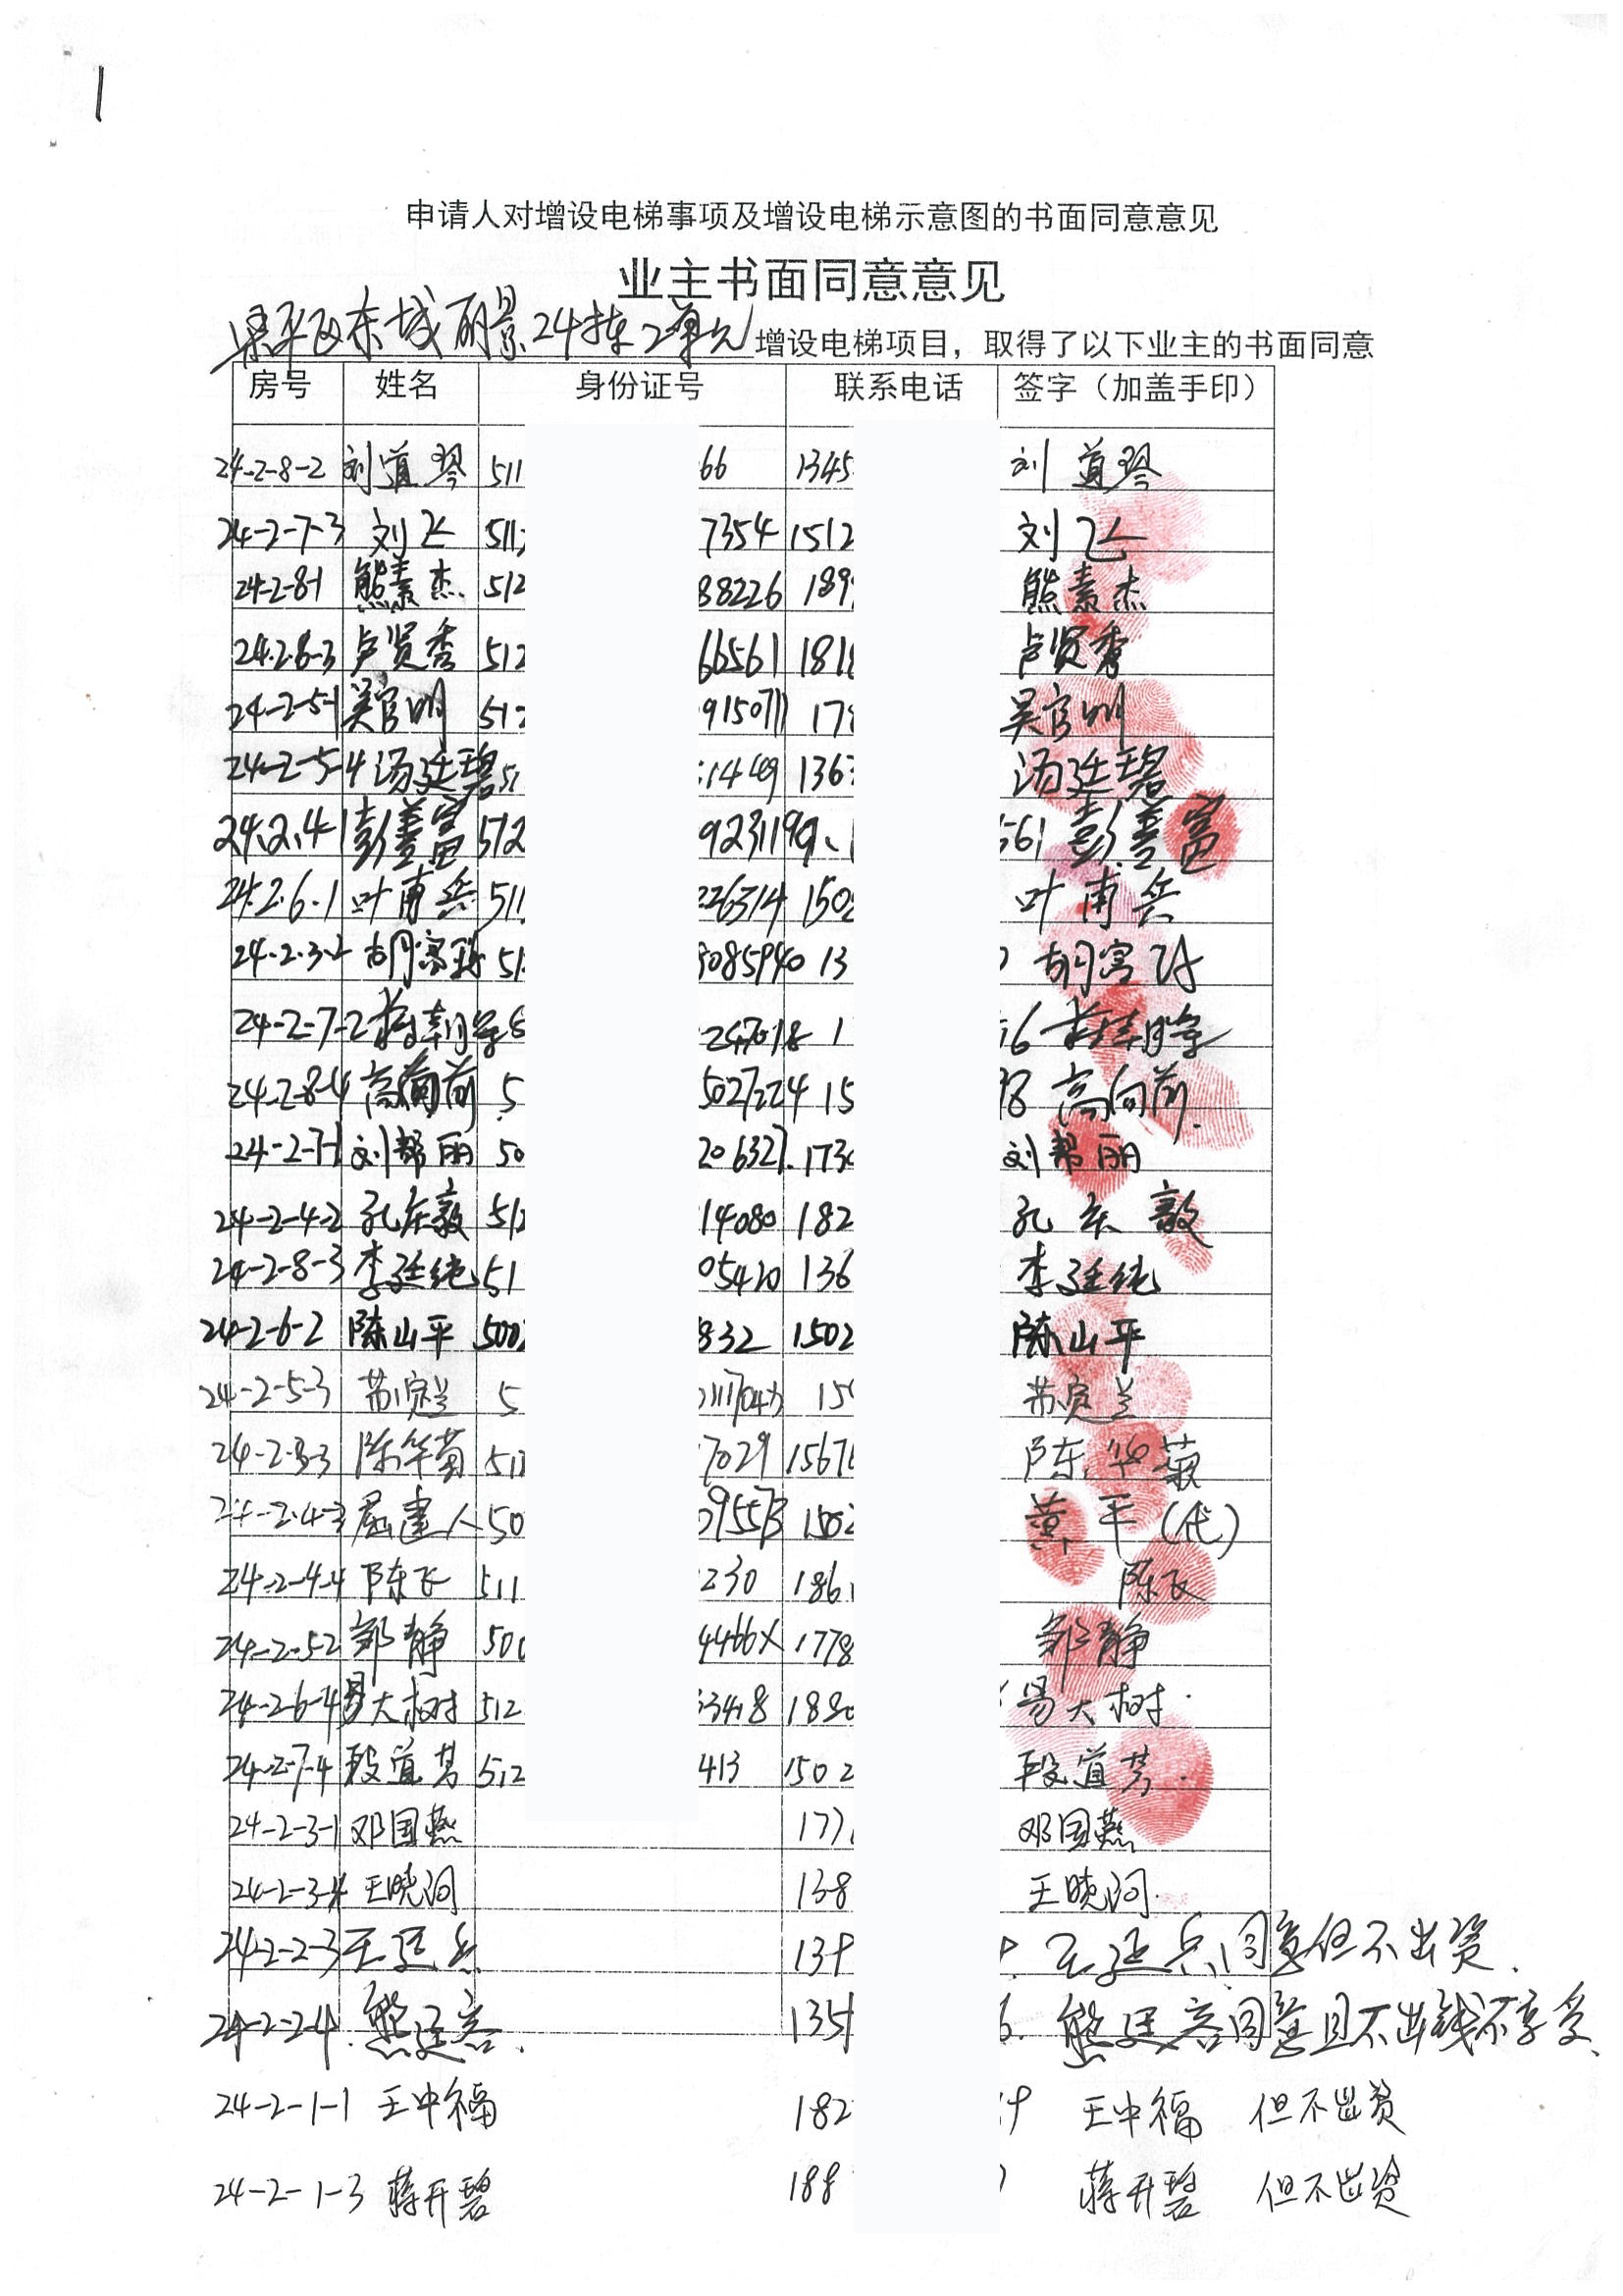 1
申请人对增设电梯事项及增设电梯示意图的书面同意意见
业主书面同意意见
梁平区东城丽景24栋2单元增设电梯项目，取得了以下业主的书面同意
房号 姓名 身份证号 联系电话 签字（加盖手印）
24-2-8-2 刘道琴 511 66 1345 刘道琴
24-2-7-3 刘飞 511 7354 1512 刘飞
24-2-8-1 熊素杰 512 88226 189 熊素杰
24.2.6-3 卢贤秀 512 66561 181 卢贤秀
24-2-5-1 吴官明 512 9150711 17 吴官明
24-2-5-4 汤廷碧 51 1449 136 汤廷碧
24.2.4-1 彭善富 512 9231199 561 彭善富
24.2.6.1 叶甫兵 511 26314 150 叶甫兵
24-2-3-2 胡富 51 085940 13 胡富
24-2-7-2 247018 1 6
24-2-8-4 高向前 5 5027224 15 98 高向前
24-2-7-1 刘帮丽 50 206327 173 刘帮丽
24-2-4-2 孔庆毅 512 14080 182 孔庆毅
24-2-8-3 李廷纯 51 05420 136 李廷纯
24-2-6-2 陈山平 500 832 1502 陈山平
24-2-5-3 苏定兰 5 15 苏定兰
24-2-3-3 陈华菊 51 7029 1567 陈华菊
24-2-4-3 建人 50 95573 150 黄平（代）
24-2-4-4 陈飞 511 230 186 陈飞
24-2-5-2 邹静 500 4466X 1778 邹静
24-2-6-4 易大树 512 3418 188 易大树
24-2-7-4 段道芳 512 413 1502 段道芳
24-2-3-1 邓国燕 177 邓国燕
24-2-3-4 王晓河 138 王晓河
24-2-2-3 王廷兵 139 王廷兵 同意但不出资.
24-2-2-4 熊廷容 135 6. 熊廷容 同意且不出钱不享受.
24-2-1-1 王中福 182 9 王中福 但不出资
24-2-1-3 蒋开碧 188 蒋开碧 但不出资